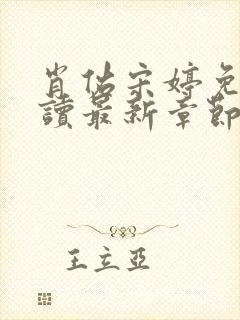 肖佔宋婷免
讀最新章節
王立亞